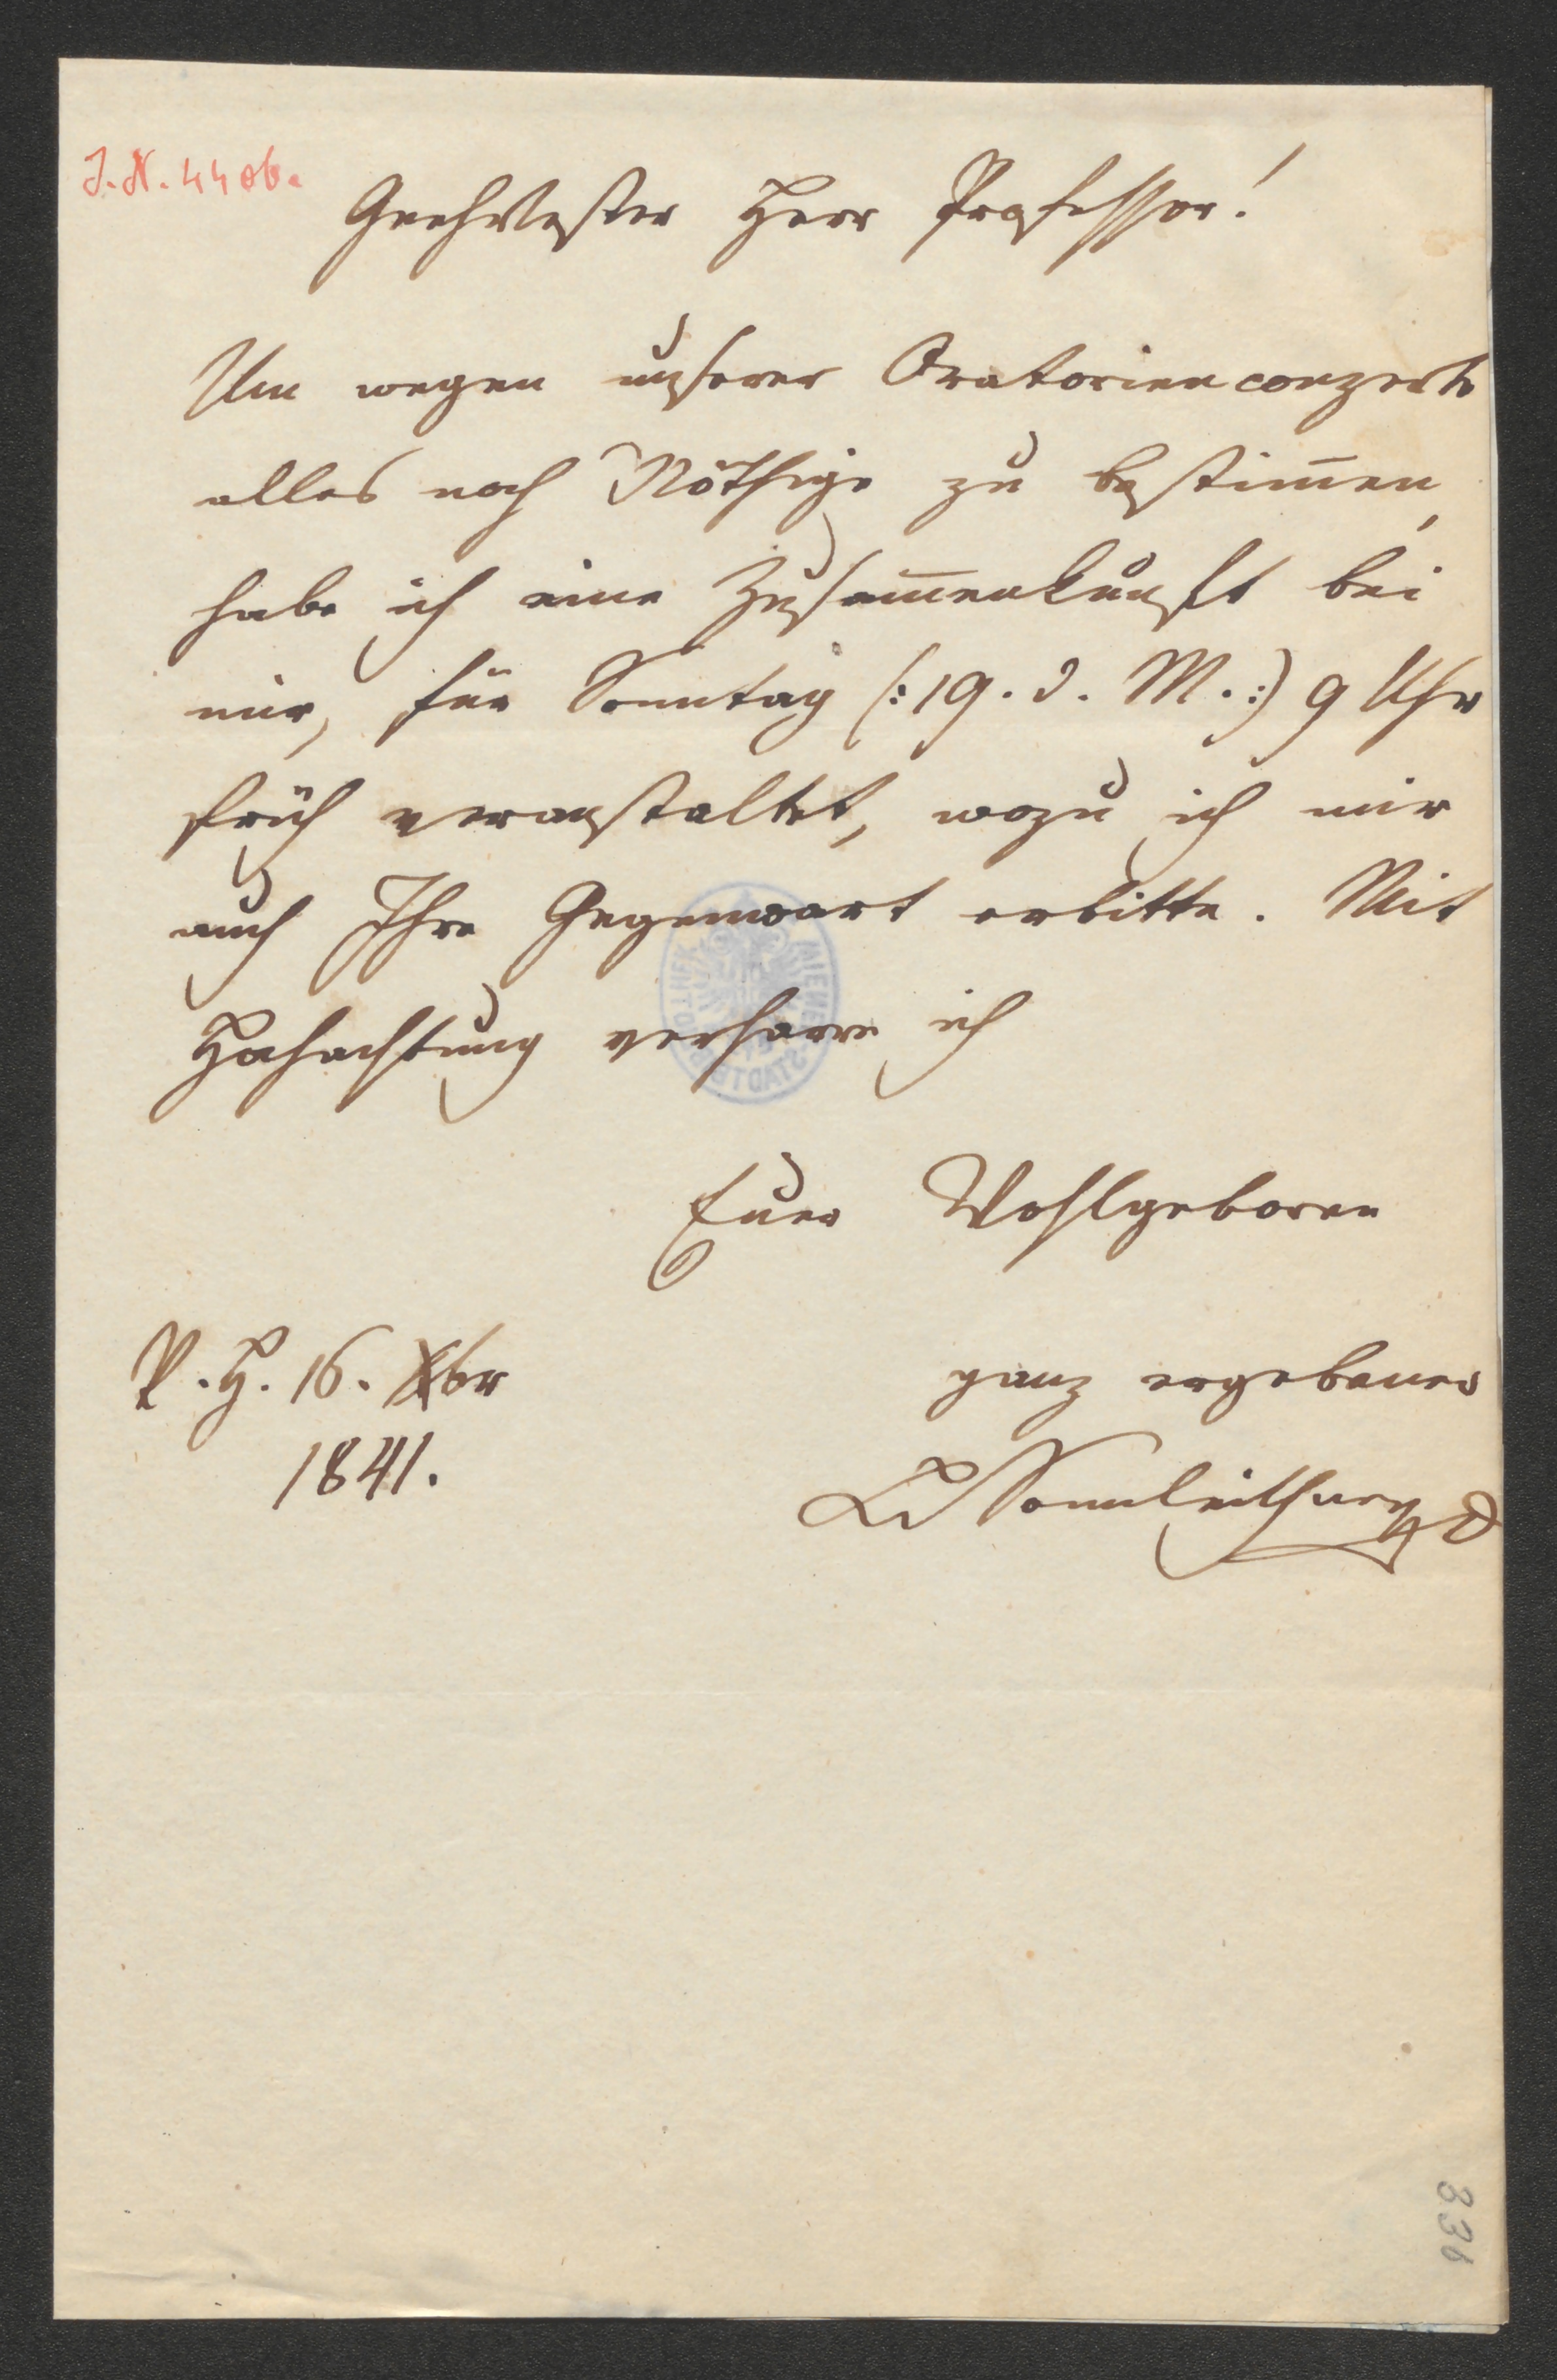 J. N. 4406.
Geehrtester Herr Professor!
Um wegen unserer Oratorienconzerte
alles noch Nöthige zu bestim̅en,
habe ich eine Zusam̅enkunft bei
mir, für Sonntag (: 19. d. M. :) 9 Uhr
früh veranstaltet, wozu ich mir
auch Ihre Gegenwart erbitte. Mit
Hochachtung verharre ich
Euer Wohlgeboren
V. H. 16. Xbr
ganz ergebener
1841.
Sonnleithner
WIENER STADTBIBLIOTHEK